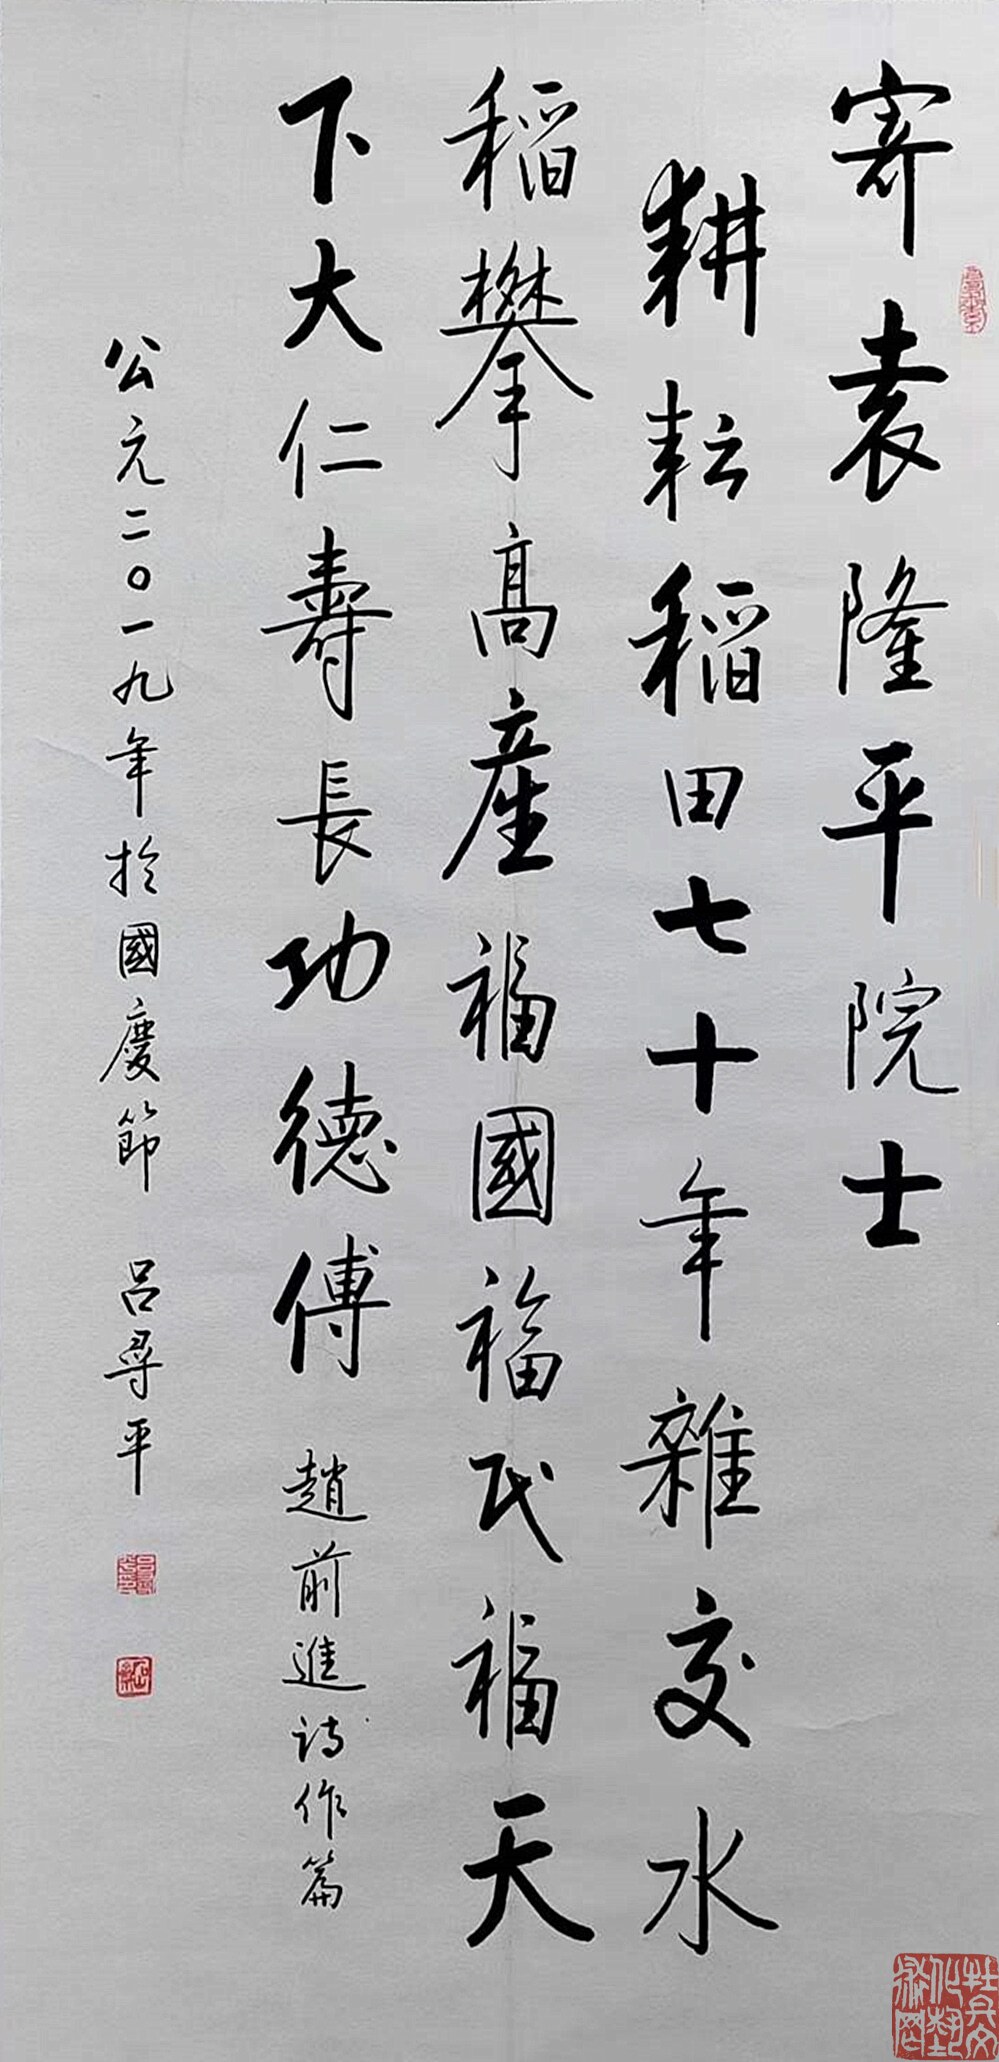 寄袁隆平院士
耕耘稻田七十年雜交水
稻攀高產福國福民福天
下大仁壽長功德傳 趙前進詩作篇
公元二〇一九年於國慶節 呂尋平